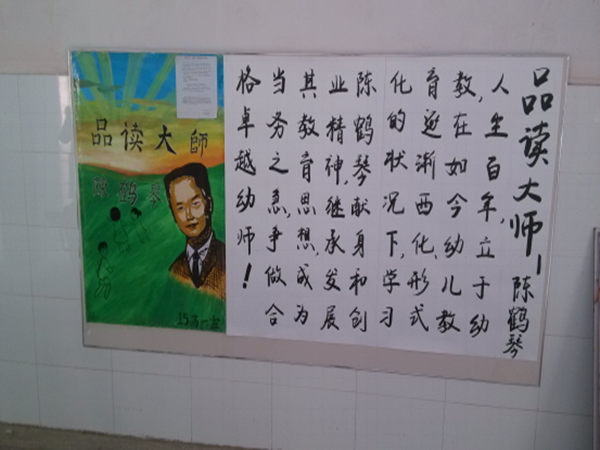 品读大師
陈鹤琴
品读大师—陈鹤琴
人生百年,立于幼
教,在如今幼儿教
育逐渐西化,形式
化的状况下,学习
陈鹤琴献身和创
业精神,继承发展
其教育思想,成为
当务之急,争做合
格卓越幼师!